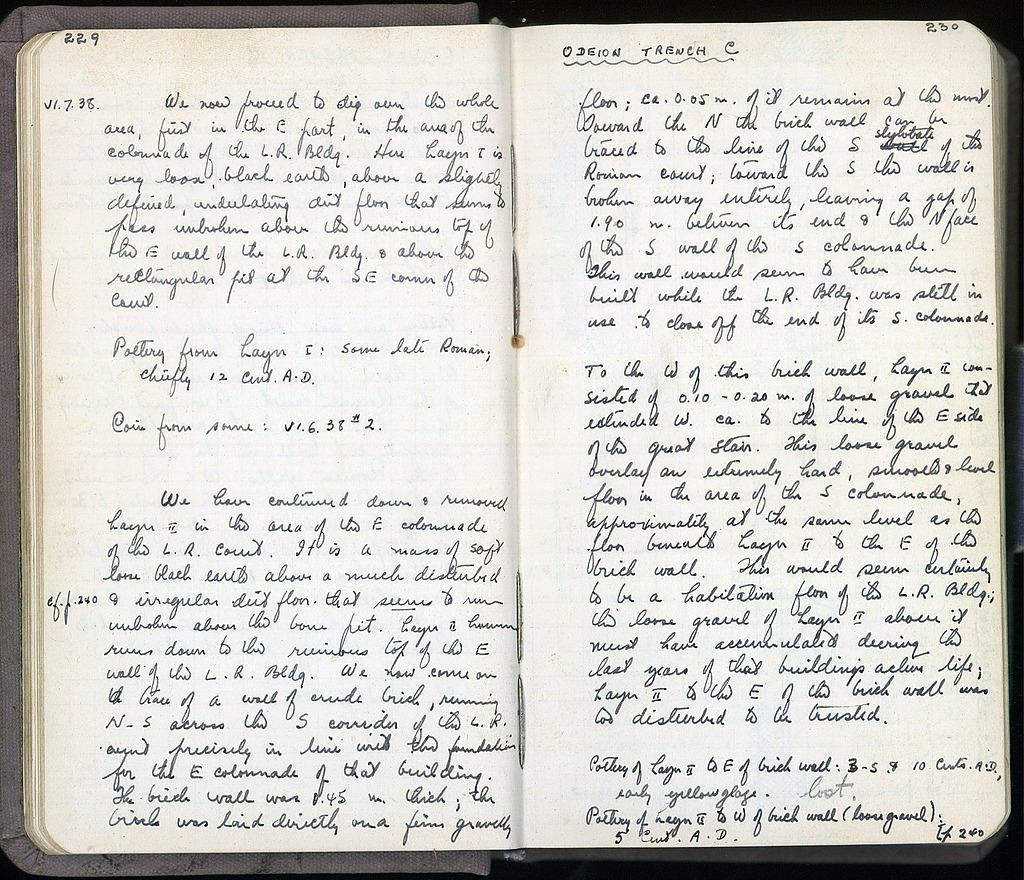 229
VI.7.38. We now proceed to dig over the whole
area, first in the E part, in the area of the
colonnade of the L.R. Bldg. Here Layer I is
very loose, black earth, above a slightly
defined, undulating dirt floor that seems to
pass unbroken above the ruinous top of
the E wall of the L.R. Bldg. & above the
rectangular pit at the SE corner of the
Court.
Pottery from Layer I: some late Roman;
chiefly 12 Cent. A.D.
Coin from same: VI.6.38 #2.
We have continued down & removed
Layer II in the area of the E colonnade
of the L.R. Court. It is a mass of soft
loose black earth above a much disturbed
cf. p. 240 & irregular dirt floor that seems to run
unbroken above the bone pit. Layer II however
runs down to the ruinous top of the E
wall of the L.R. Bldg. We now come on
the trace of a wall of crude brick, running
N-S across the S corridor of the L.R.
court precisely in line with the foundation
for the E colonnade of that building.
The brick wall was 0.45 m. thick; the
brick was laid directly on a firm gravelly
230
ODEION TRENCH C
floor; ca. 0.05 m. of it remains at the most.
Toward the N the brick wall can be
traced to the line of the S stylobate of the
Roman court; toward the S the wall is
broken away entirely, leaving a gap of
1.90 m. between its end & the N face
of the S wall of the S colonnade.
This wall would seem to have been
built while the L.R. Bldg. was still in
use to close off the end of its S. colonnade.
To the W of this brick wall, Layer II con-
sisted of 0.10 - 0.20 m. of loose gravel that
extended W. ca. to the line of the E side
of the great stair. This loose gravel
overlay an extremely hard, smooth & level
floor in the area of the S colonnade,
approximately at the same level as the
floor beneath Layer II to the E of the
brick wall. This would seem certainly
to be a habitation floor of the L.R. Bldg.;
the loose gravel of Layer II above it
must have accumulated during the
last years of that buildings active life;
Layer II to the E of the brick wall was
too disturbed to be trusted.
Pottery of Layer II to E of brick wall: 3-5 & 10 Cents. A.D.,
early yellow glaze. lost.
Pottery of Layer II to W of brick wall (loose gravel):
5 Cent. A.D. cf. 240